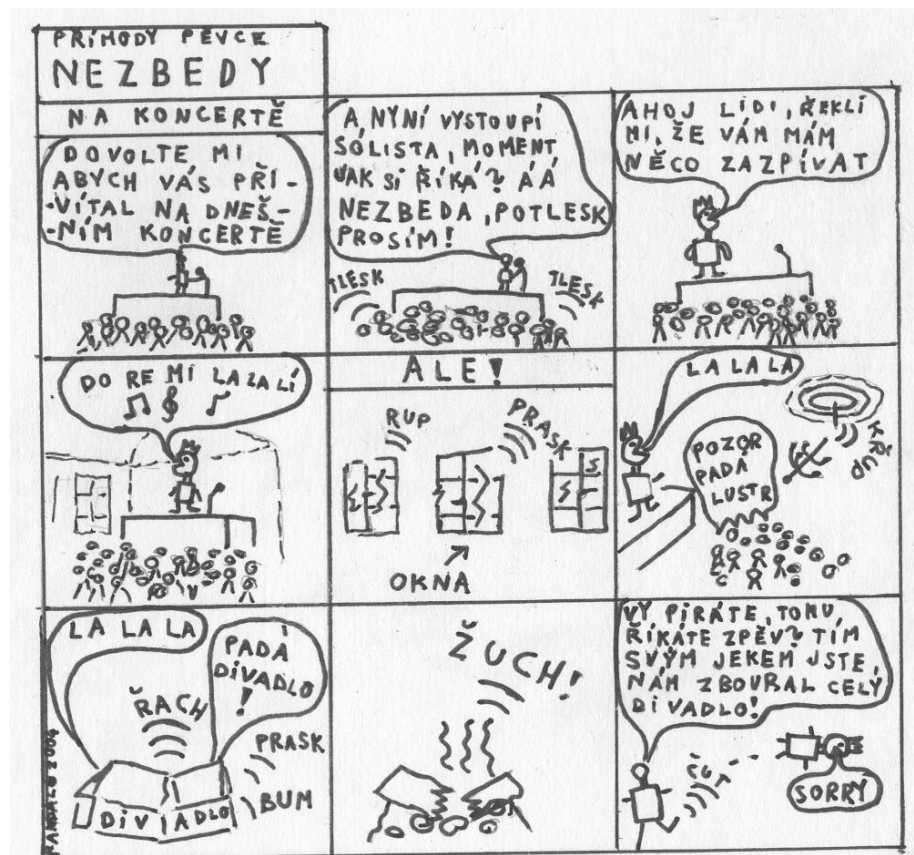 PŘÍHODY PĚVCE
NEZBEDY
NA KONCERTĚ
DOVOLTE MI
ABYCH VÁS PŘÍ-
-VÍTAL NA DNEŠ-
-NÍM KONCERTĚ
A NYNÍ VYSTOUPÍ
SÓLISTA, MOMENT
JAK SI ŘÍKÁ? ÁÁ
NEZBEDA, POTLESK
PROSÍM!
TLESK
TLESK
AHOJ LIDI, ŘEKLI
MI, ŽE VÁM MÁM
NĚCO ZAZPÍVAT
DO RE MI LA ZA LÍ
ALE!
RUP
PRASK
OKNA
LA LA LA
KŘUP
POZOR
PADÁ
LUSTR
LA LA LA
PADÁ
DIVADLO
!
ŘACH
PRASK
BUM
DIVADLO
ŽUCH!
VY PIRÁTE, TOMU
ŘÍKÁTE ZPĚV? TÍM
SVÝM JEKEM JSTE
NÁM ZBOURAL CELÝ
DIVADLO!
SORRY